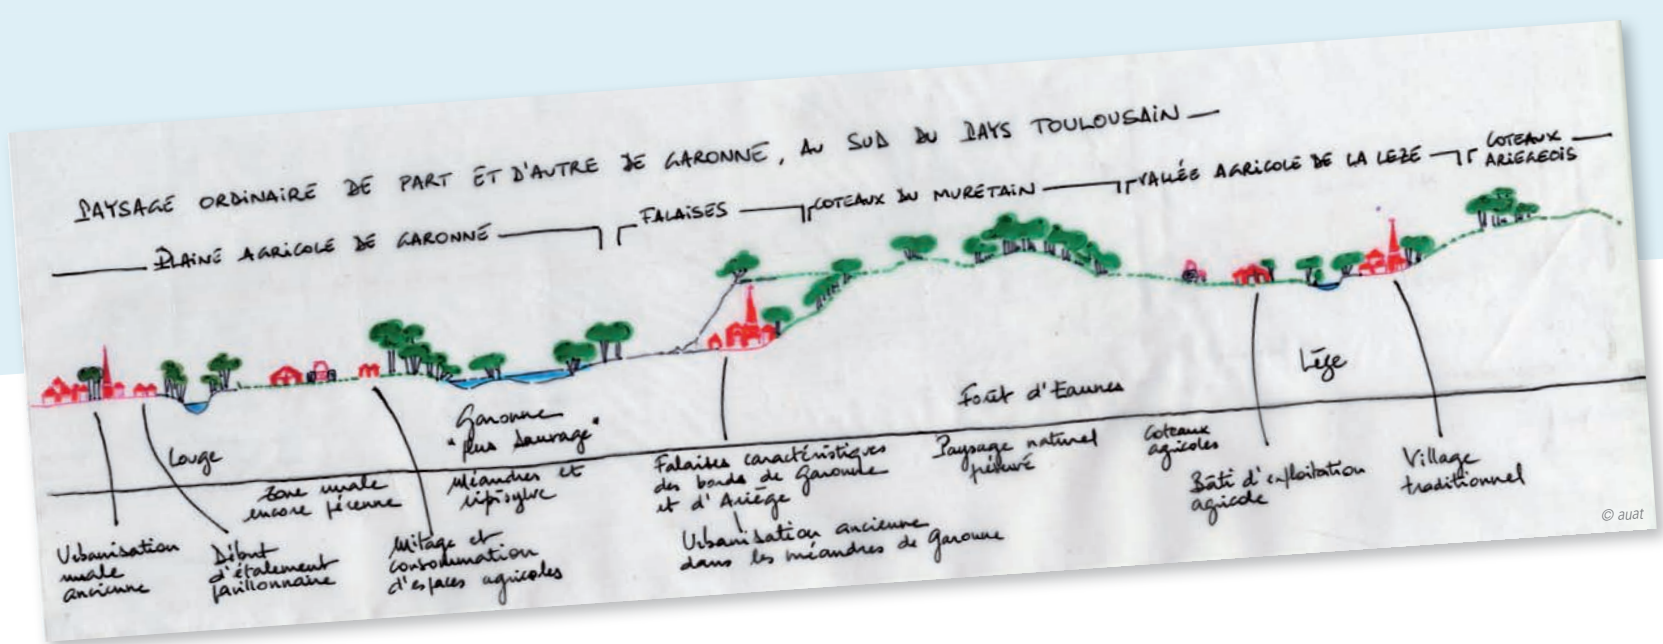 PAYSAGE ORDINAIRE DE PART ET D'AUTRE DE GARONNE, AU SUD DU PAYS TOULOUSAIN
PLAINE AGRICOLE DE GARONNE
FALAISES
COTEAUX DU MURETAIN
VALLÉE AGRICOLE DE LA LEZE
COTEAUX
ARIEGEOIS
Louge
Garonne
"plus sauvage"
Forêt d'Eaunes
Lèze
Zone rurale
encore pérenne
Méandres et
ripisylve
Falaises caractéristiques
des bords de Garonne
et d'Ariège
Paysage naturel
préservé
Coteaux
agricoles
Bâti d'exploitation
agricole
Village
traditionnel
Urbanisation
rurale
ancienne
Début
d'étalement
pavillonnaire
Mitage et
consommation
d'espaces agricoles
Urbanisation ancienne
dans les méandres de Garonne
© auat